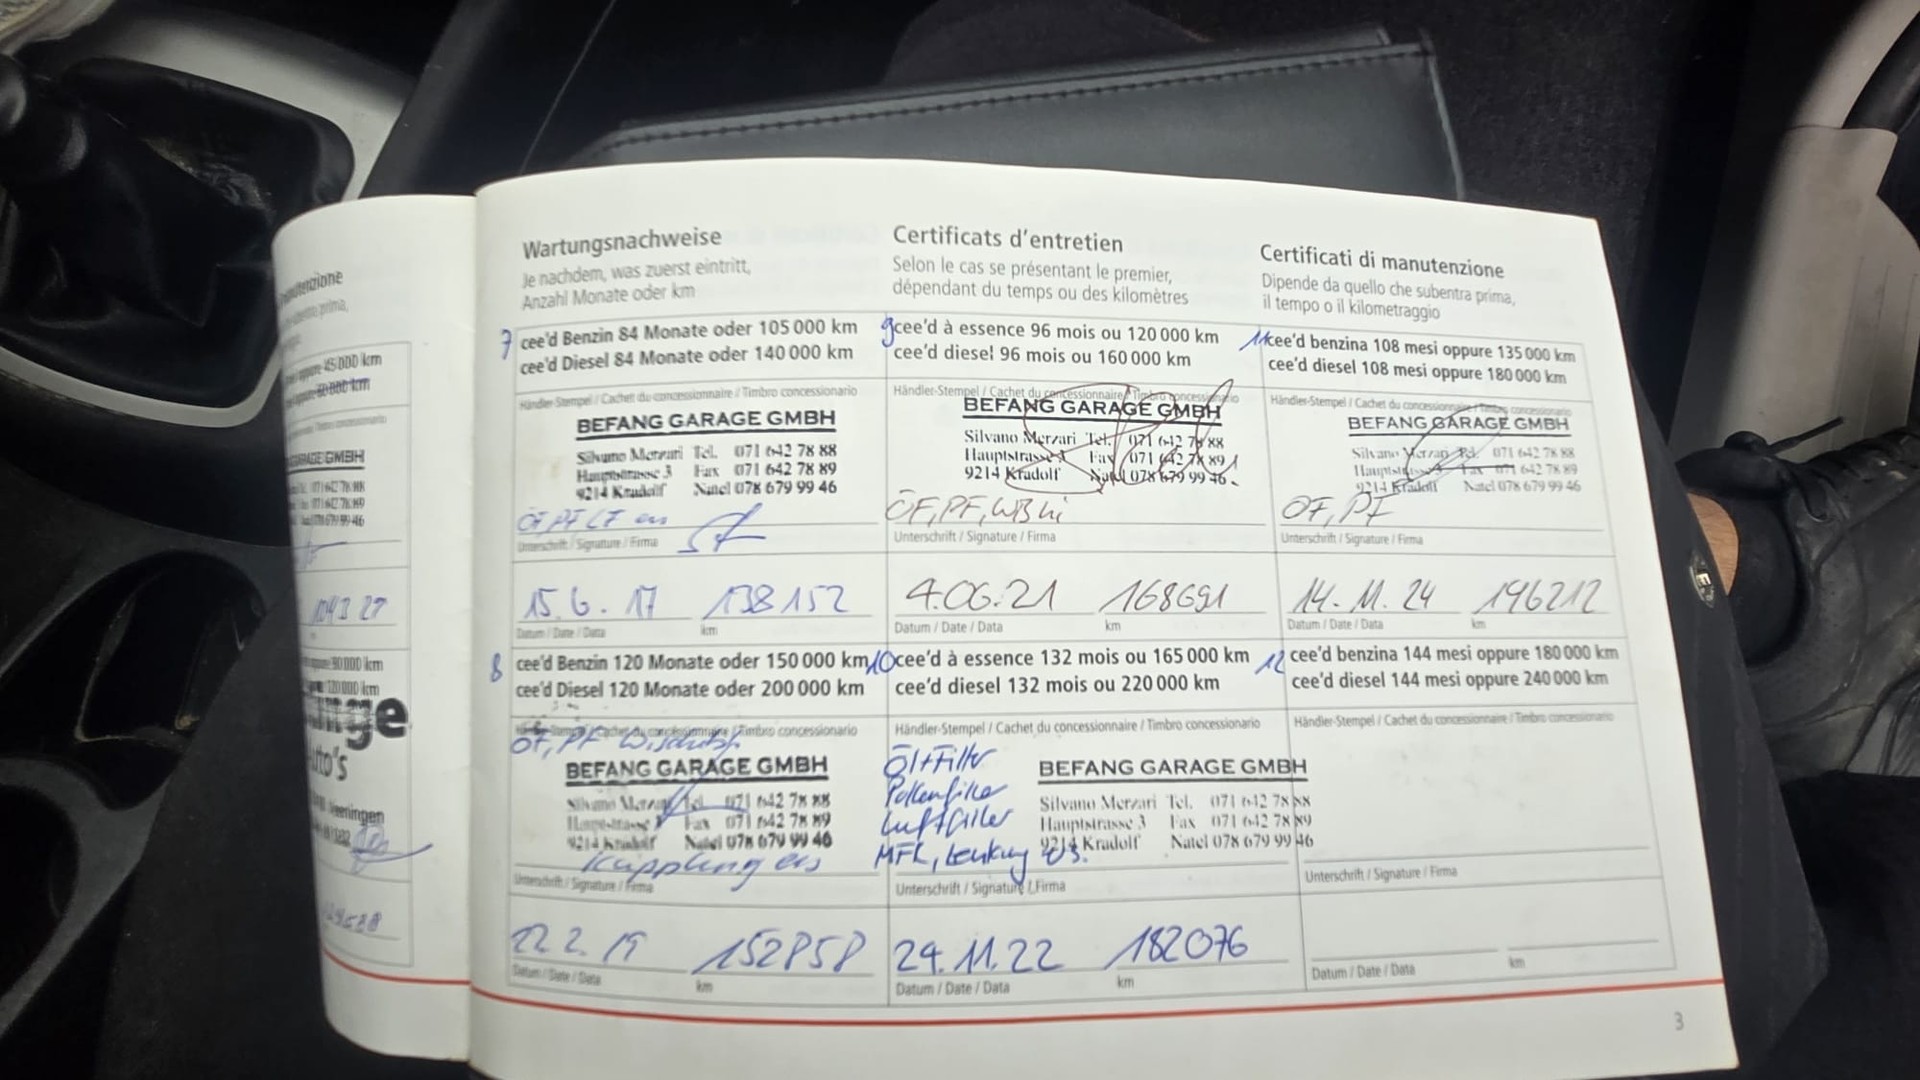 45 000 km
GARAGE GMBH
90 000 km
120 000 km
Wartungsnachweise
Je nachdem, was zuerst eintritt,
Anzahl Monate oder km
7 cee'd Benzin 84 Monate oder 105 000 km
cee'd Diesel 84 Monate oder 140 000 km
Händler-Stempel / Cachet du concessionnaire / Timbro concessionario
BEFANG GARAGE GMBH
Silvano Merzari Tel. 071 642 78 88
Hauptstrasse 3 Fax 071 642 78 89
9214 Kradolf Natel 078 679 99 46
ÖF, PF LF
Unterschrift / Signature / Firma
15. 6. 17 138152
Datum / Date / Data km
8 cee'd Benzin 120 Monate oder 150 000 km
cee'd Diesel 120 Monate oder 200 000 km
Händler-Stempel / Cachet du concessionnaire / Timbro concessionario
ÖF, PF
BEFANG GARAGE GMBH
Silvano Merzari Tel. 071 642 78 88
Hauptstrasse 3 Fax 071 642 78 89
9214 Kradolf Natel 078 679 99 46
Kupplung ers
Unterschrift / Signature / Firma
22 2. 19 152858
Datum / Date / Data km
Certificats d'entretien
Selon le cas se présentant le premier,
dépendant du temps ou des kilomètres
9 cee'd à essence 96 mois ou 120 000 km
cee'd diesel 96 mois ou 160 000 km
Händler-Stempel / Cachet du concessionnaire / Timbro concessionario
BEFANG GARAGE GMBH
Silvano Merzari Tel. 071 642 78 88
Hauptstrasse 3 Fax 071 642 78 89
9214 Kradolf Natel 078 679 99 46
ÖF, PF, WB hi
Unterschrift / Signature / Firma
4.06.21 168691
Datum / Date / Data km
10 cee'd à essence 132 mois ou 165 000 km
cee'd diesel 132 mois ou 220 000 km
Händler-Stempel / Cachet du concessionnaire / Timbro concessionario
Öl+Filter
Pollenfilter
Luftfilter
MFK, Lenkung
BEFANG GARAGE GMBH
Silvano Merzari Tel. 071 642 78 88
Hauptstrasse 3 Fax 071 642 78 89
9214 Kradolf Natel 078 679 99 46
Unterschrift / Signature / Firma
24. 11. 22 182076
Datum / Date / Data km
Certificati di manutenzione
Dipende da quello che subentra prima,
il tempo o il kilometraggio
11 cee'd benzina 108 mesi oppure 135 000 km
cee'd diesel 108 mesi oppure 180 000 km
Händler-Stempel / Cachet du concessionnaire / Timbro concessionario
BEFANG GARAGE GMBH
Silvano Merzari Tel. 071 642 78 88
Hauptstrasse 3 Fax 071 642 78 89
9214 Kradolf Natel 078 679 99 46
ÖF, PF
Unterschrift / Signature / Firma
14. 11. 24 196212
Datum / Date / Data km
12 cee'd benzina 144 mesi oppure 180 000 km
cee'd diesel 144 mesi oppure 240 000 km
Händler-Stempel / Cachet du concessionnaire / Timbro concessionario
Unterschrift / Signature / Firma
Datum / Date / Data km
3